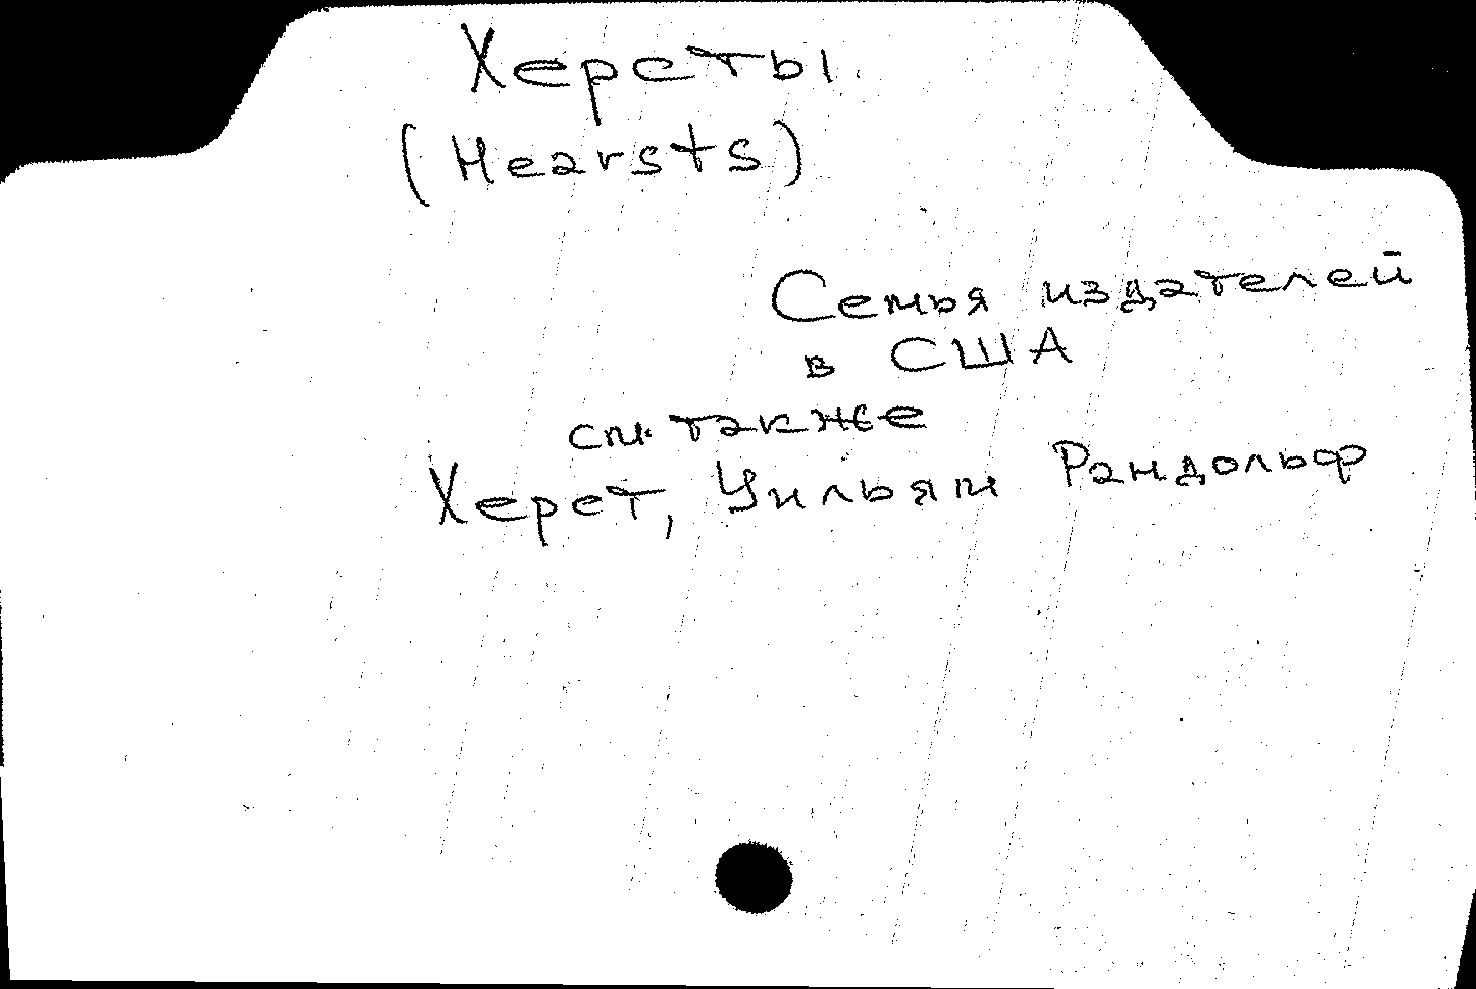 Херсты
(Hearsts)
Семья издателей
в США
см. также
Херст, Уильям Рандольф